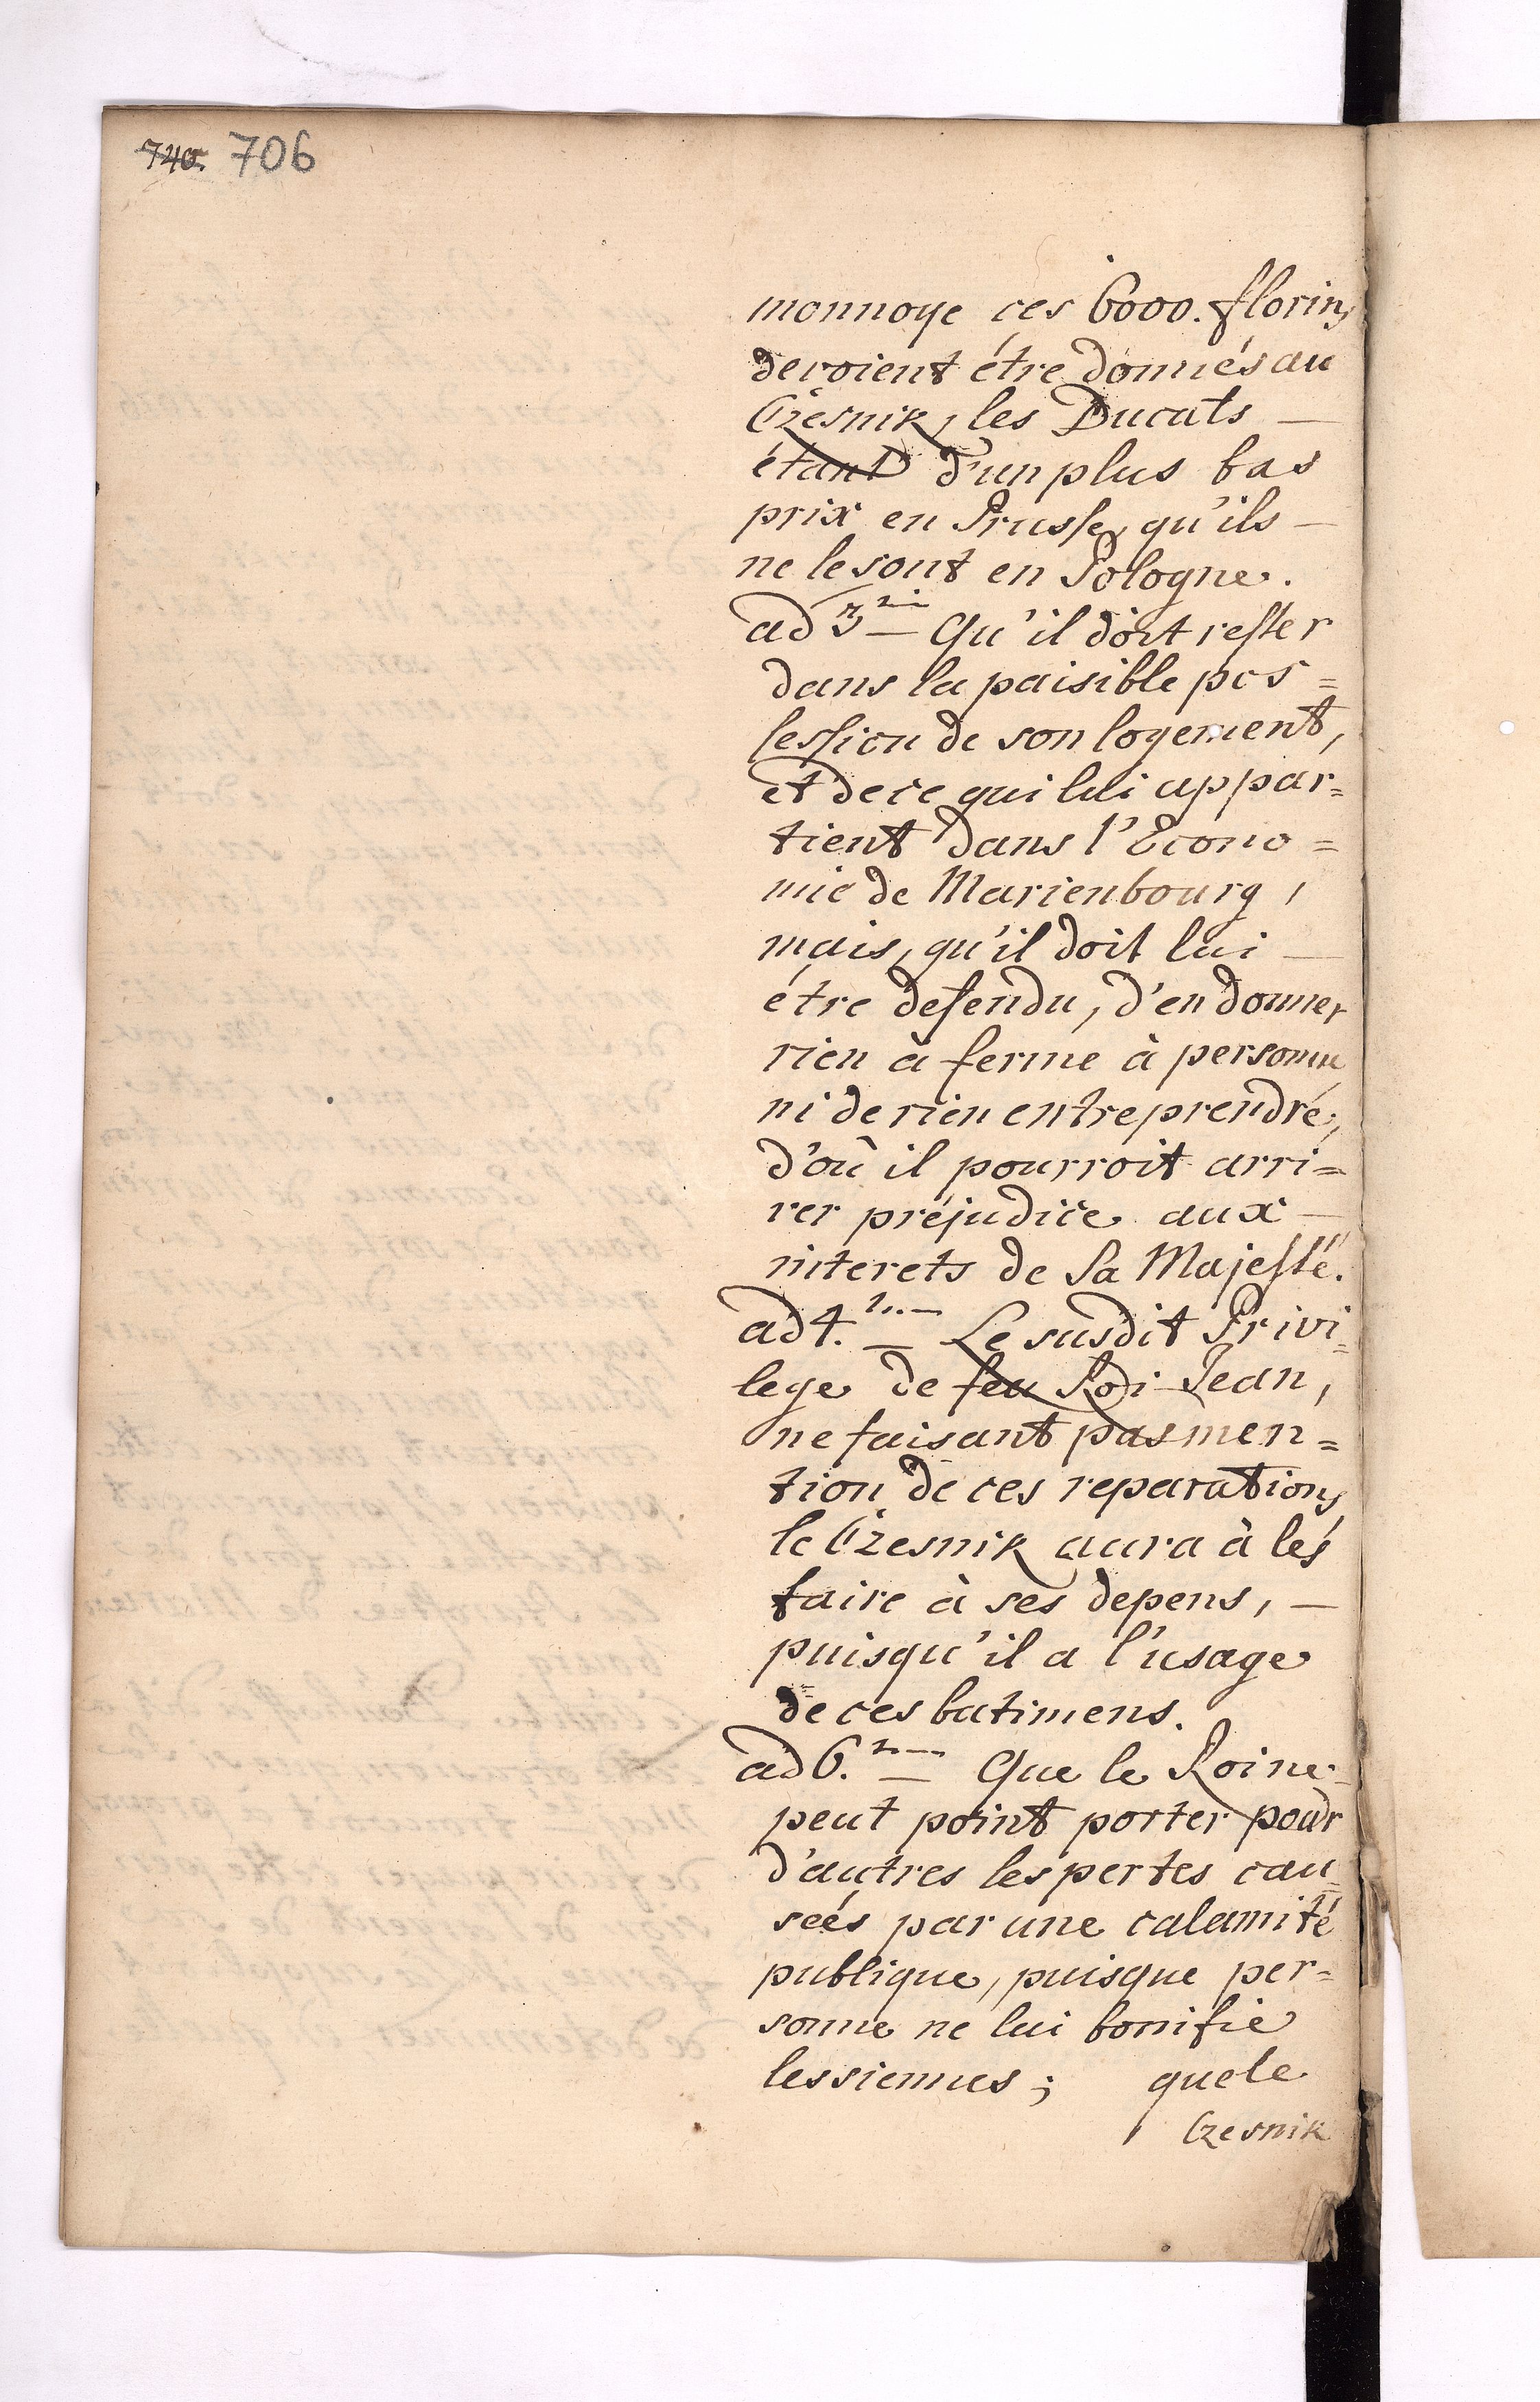 740. 706
monnoye ces 6000. florins
devoient étre donnés au
Czesnik, les Ducats —
étant d'un plus bas
prix en Prusse, qu'ils —
ne le sont en Pologne.
ad 3 — Qu'il doit rester
dans la paisible pos=
session de son logement,
et de ce qui lui appar=
tient dans l'Econo=
mie de Marienbourg,
mais, qu'il doit lui —
étre defendu, d'en donner
rien à ferme à personne
ni de rien entreprendre,
d'où il pourroit arri=
ver préjudice aux —
interets de Sa Majesté.
ad 4. — Le susdit Privi=
lege de feu Roi Jean,
ne faisant pas men=
tion de ces reparations
le Czesnik aura à les
faire à ses depens, —
puisqu'il a l'usage
de ces batimens.
ad 6. — Que le Roi ne
peut point porter pour
d'autres les pertes cau=
sées par une calamité
publique, puisque per=
sonne ne lui bonifie
les siennes; que le
Czesnik